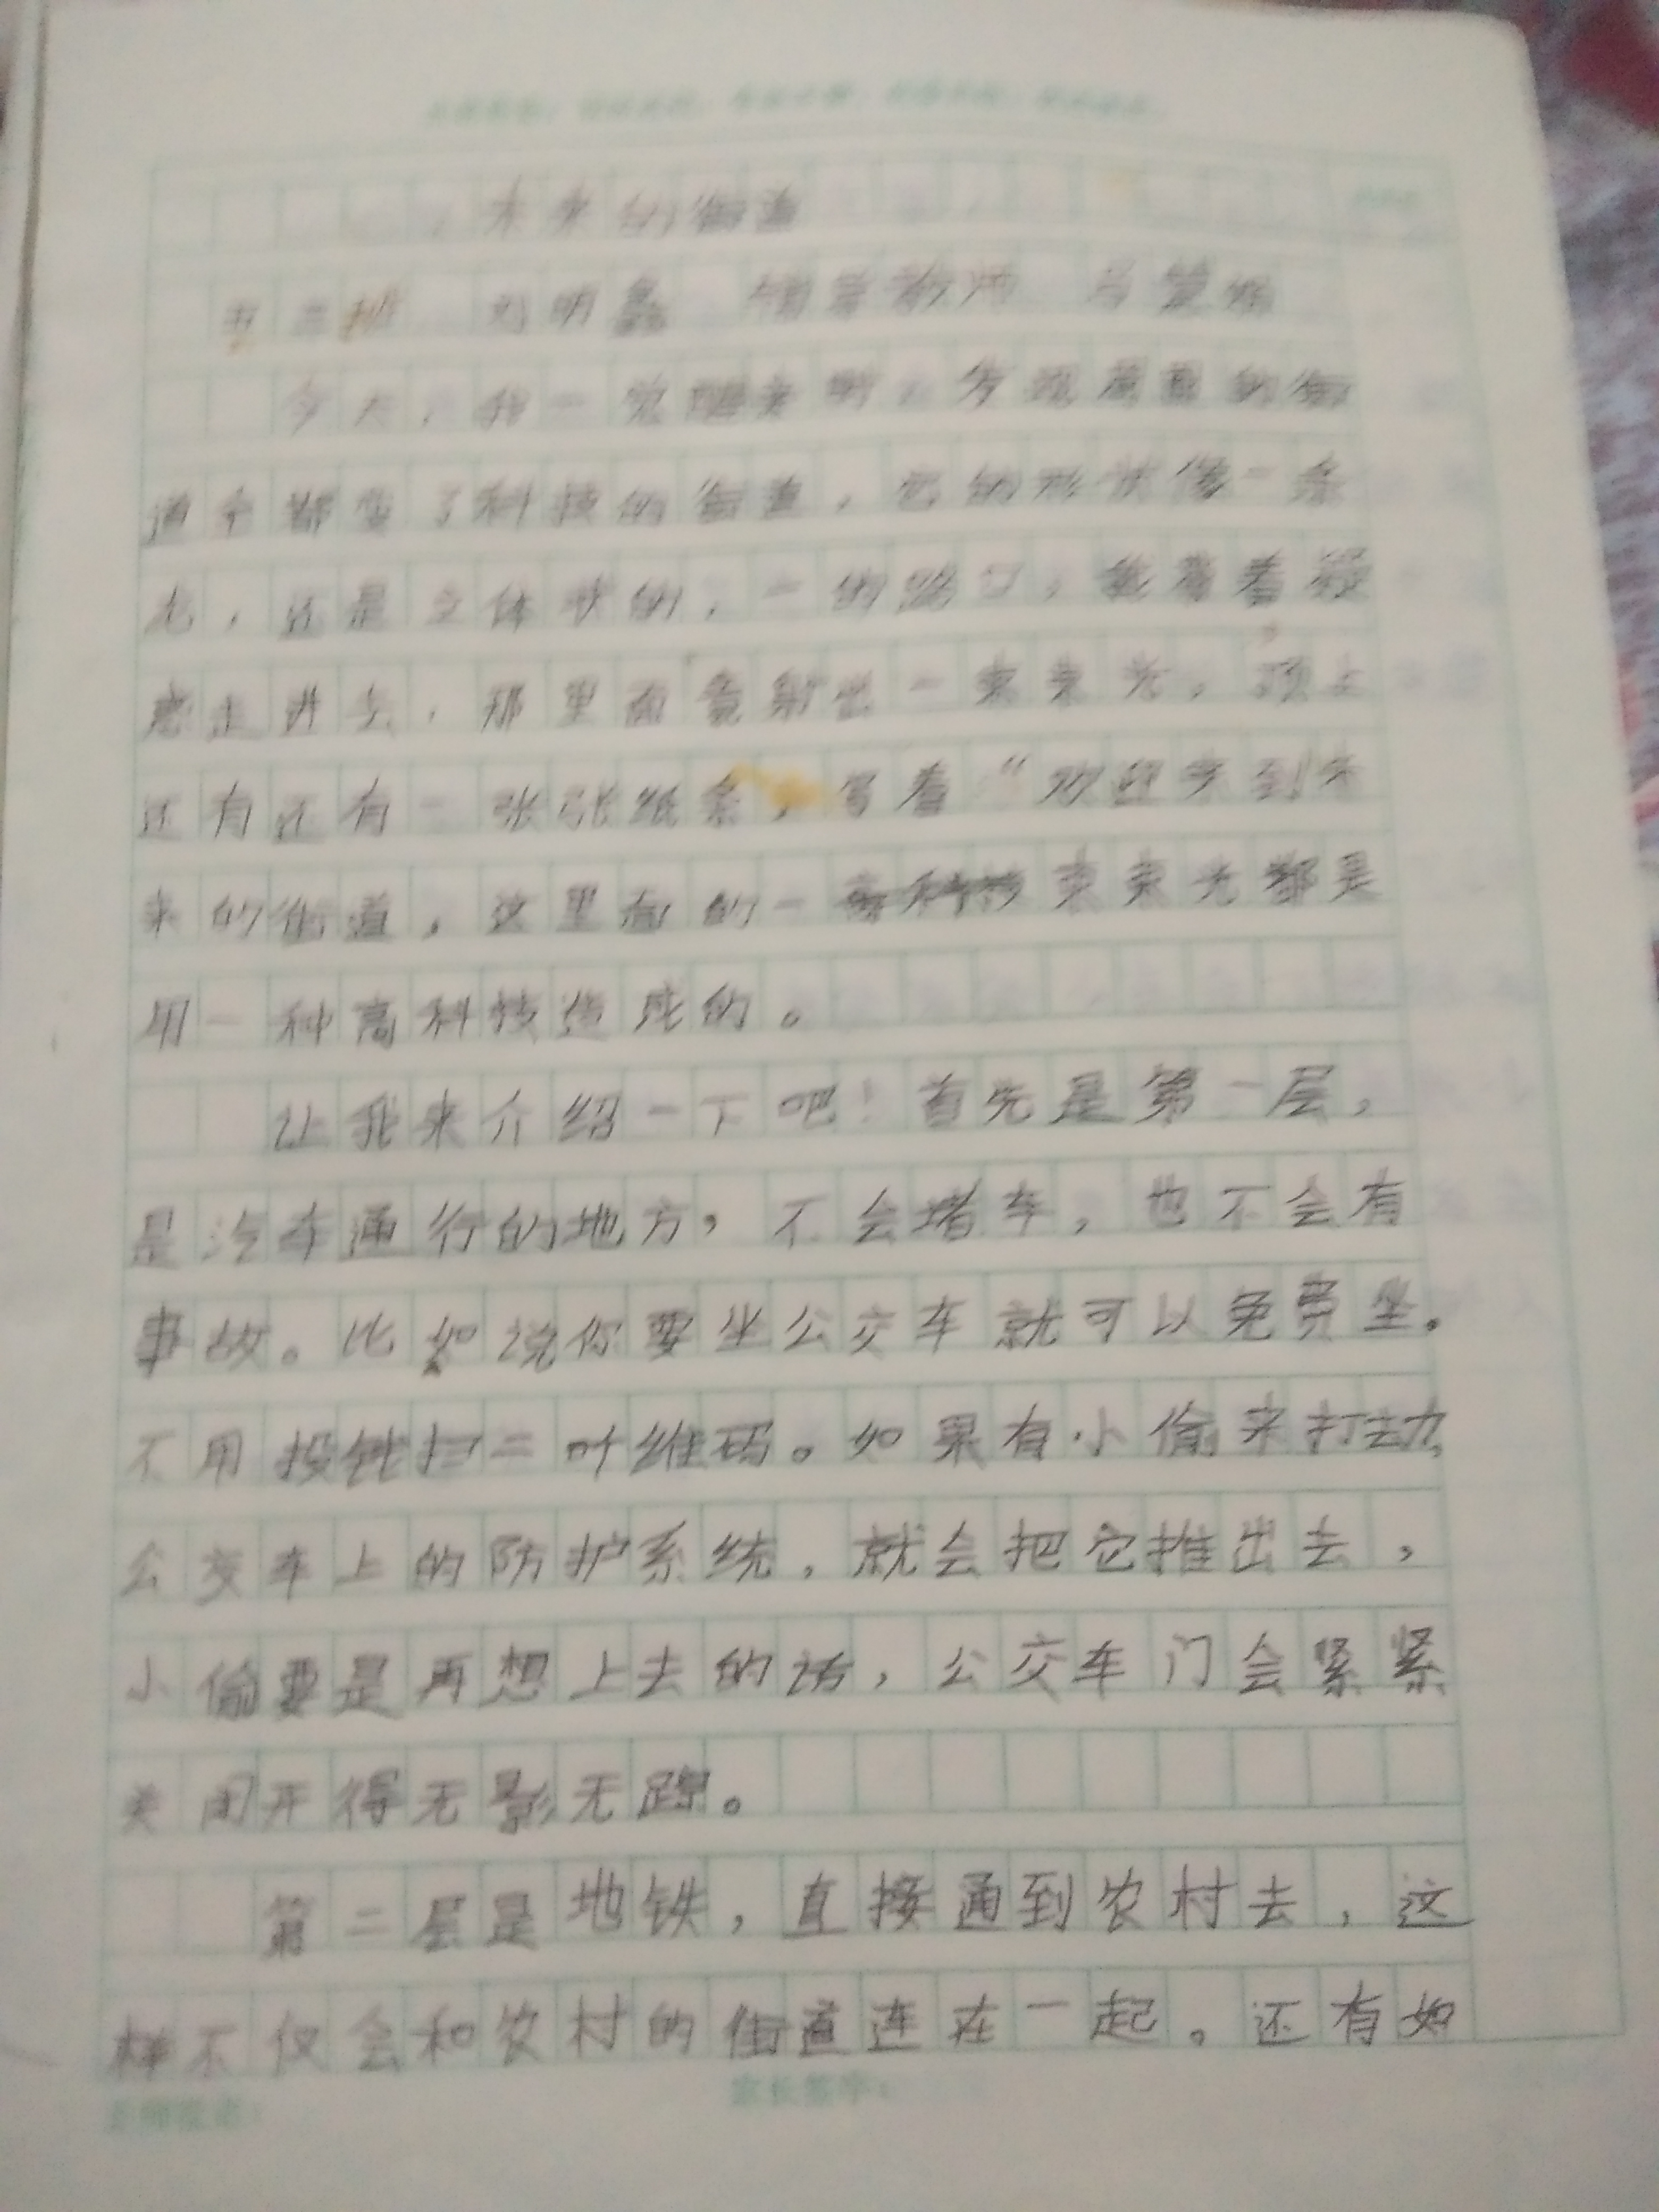 未来的街道
五三班 刘明 辅导教师 马
今天,我一觉醒来时,发现周围的街
道全都变了科技的街道,它的形状像一条
龙,还是立体状的,一的路口,我带着疑
惑走进去,那里面竟射出一束束光,顶上
还有还有一张张纸条,写着“欢迎来到未
来的街道,这里面的一束束光都是
用一种高科技造成的。
让我来介绍一下吧!首先是第一层,
是汽车通行的地方,不会堵车,也不会有
事故。比如说你要坐公交车就可以免费坐。
不用投钱扫二叶维码。如果有小偷来打劫,
公交车上的防护系统,就会把它推出去,
小偷要是再想上去的话,公交车门会紧紧
关闭开得无影无踪。
第二层是地铁,直接通到农村去,这
样不仅会和农村的街道连在一起。还有如
家长签字: